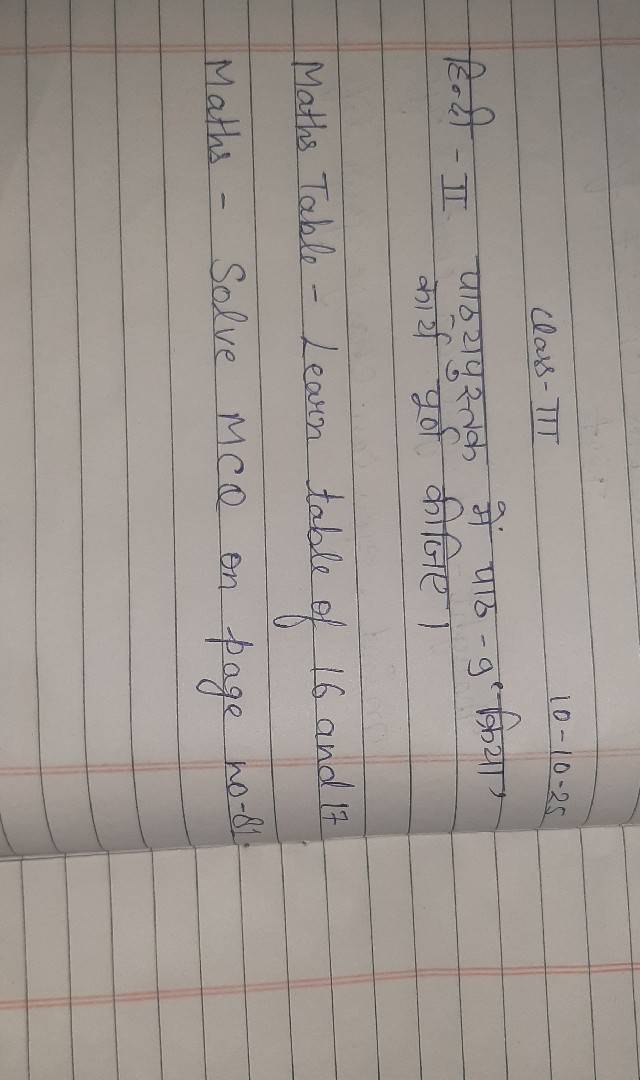 Class-III 10-10-25
हिन्दी - II पाठ्यपुस्तक में पाठ-9 'क्रिया'
कार्य पूर्ण कीजिए।
Maths Table - Learn table of 16 and 17
Maths - Solve MCQ on page no-81.